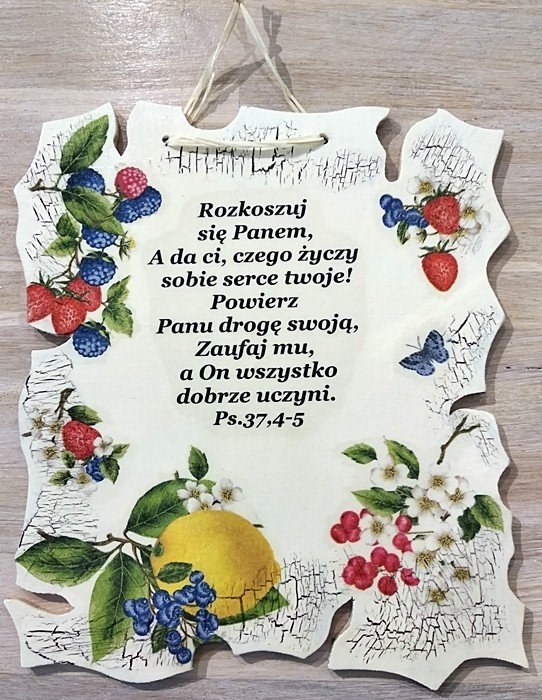 Rozkoszuj
się Panem,
A da ci, czego życzy
sobie serce twoje!
Powierz
Panu drogę swoją,
Zaufaj mu,
a On wszystko
dobrze uczyni.
Ps.37,4-5